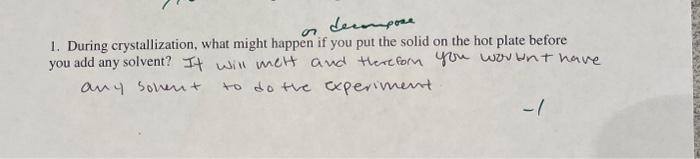 or decompose
1. During crystallization, what might happen if you put the solid on the hot plate before
you add any solvent? It will melt and therefore you wouldn't have
any solvent to do the experiment
-1